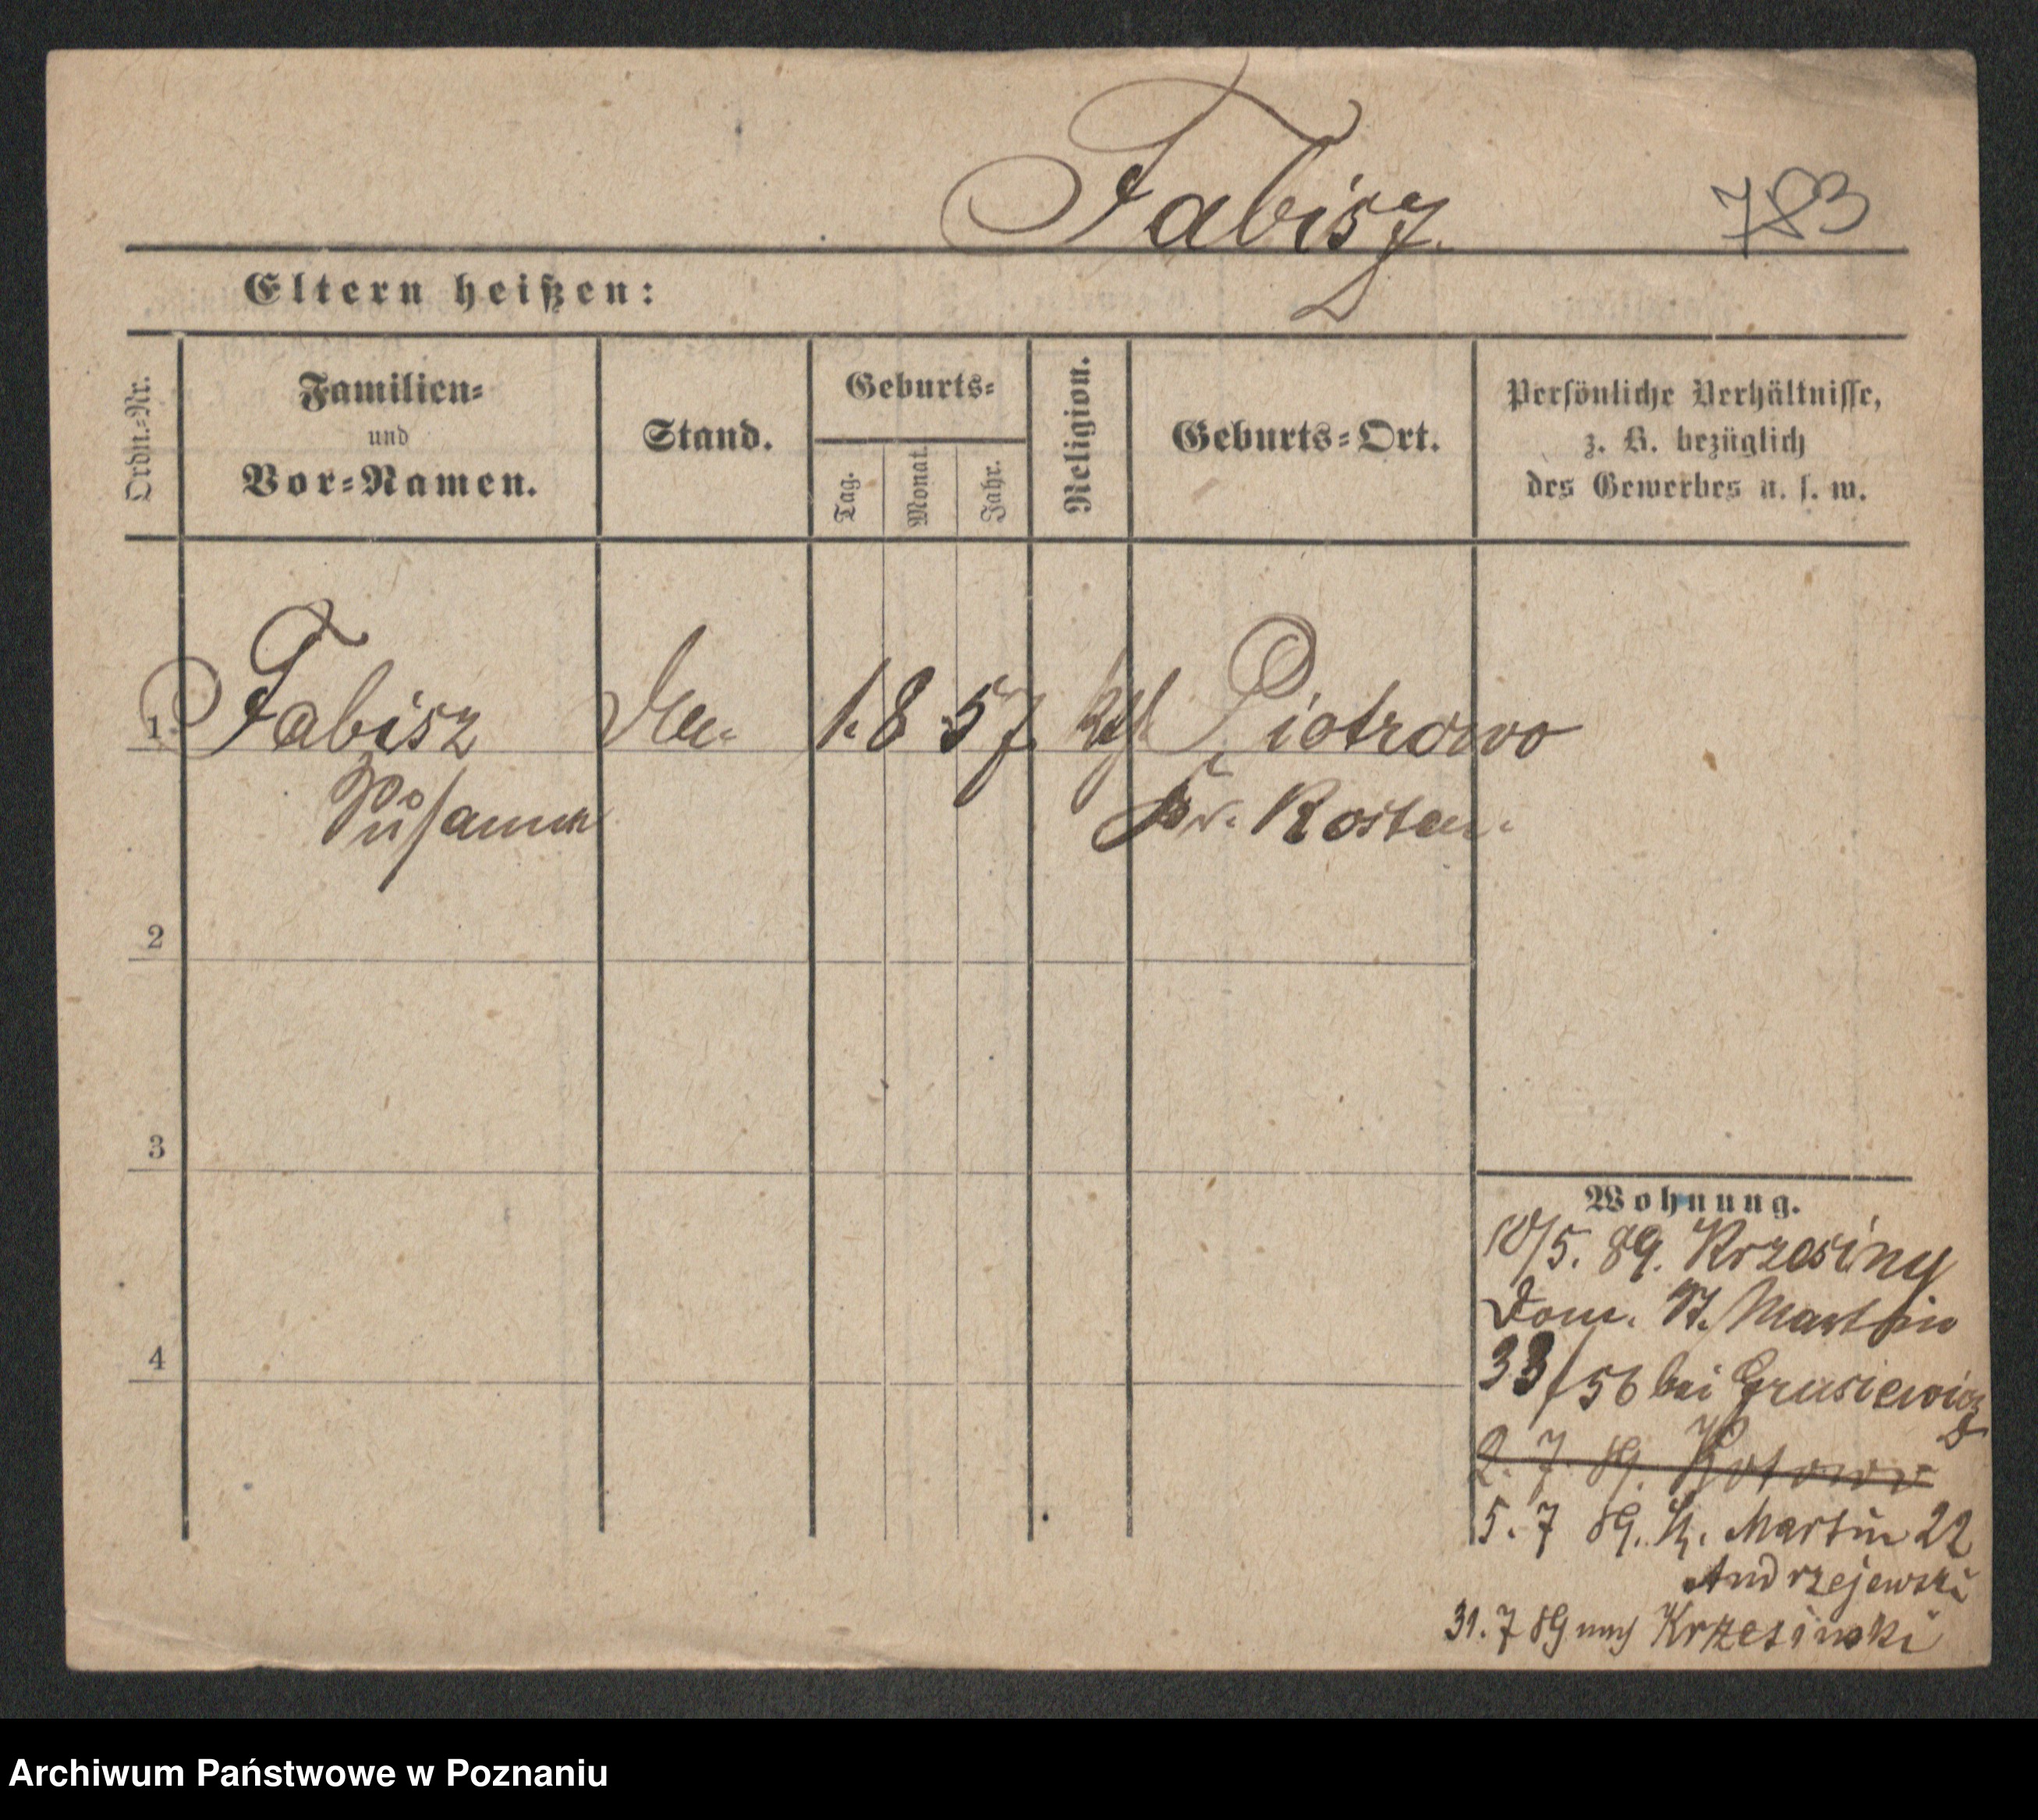 Fabisz.
783
Eltern heißen:
Ordn.-Nr.
Familien-
und
Vor-Namen.
Stand.
Geburts-
Tag.
Monat.
Jahr.
Religion.
Geburts-Ort.
Persönliche Verhältnisse,
z. B. bezüglich
des Gewerbes u. s. w.
1 Fabisz 1. 8 57. Piotrowo
Kr. Kosten.
2
3
4
Wohnung.
10/5. 89. Krzesiny
Dom. St. Martin
33/56 bei Grusiewicz
2. 7. 89. Kotowo
5. 7 89. St. Martin 22
Andrzejewski
31. 7 89 nach Krzesinski
Archiwum Państwowe w Poznaniu